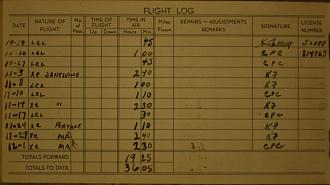 FLIGHT LOG
DATE NATURE OF FLIGHT No. of Pass. TIME OF FLIGHT Up Down TIME IN AIR Hours Min. Miles Flown REPAIRS — ADJUSTMENTS REMARKS SIGNATURE LICENSE NUMBER
10-19 LCL 45
10-20 LCL 1 00 CPC
10-27 LCL 45 CPC
11-3 XC JANESVILLE 2 40 K7
11-8 LCL 1 00 K7
11-10 LCL 1 10 CPC
11-14 XC " 2 30 K7
11-17 LCL 30 CPC
11-24 XC PORTAGE 1 10 K7
11-27 XC 2 40 K7
12-1 XC 2 30 CPC
TOTALS FORWARD 19 25
TOTALS TO DATE 36 05